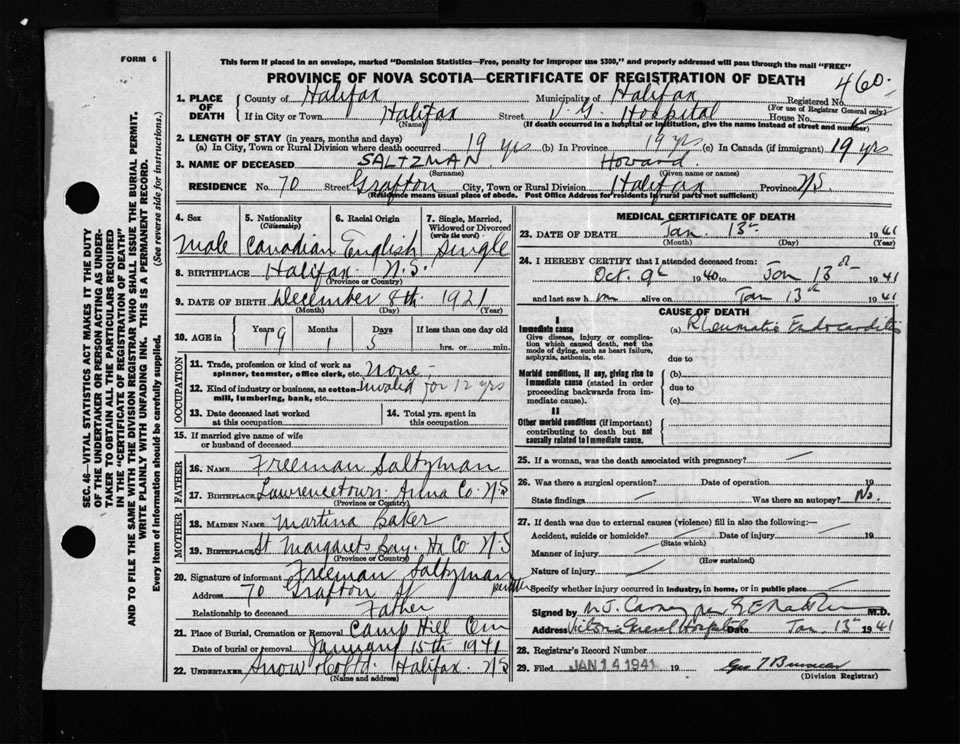 FORM 6
This form if placed in an envelope, marked "Dominion Statistics—Free, penalty for improper use $300," and properly addressed will pass through the mail "FREE"
PROVINCE OF NOVA SCOTIA—CERTIFICATE OF REGISTRATION OF DEATH
460
1. PLACE OF DEATH County of Halifax Municipality of Halifax Registered No.
(For use of Registrar General only)
If in City or Town Halifax Street V. G. Hospital House No.
(Name) (If death occurred in a hospital or institution, give the name instead of street and number)
2. LENGTH OF STAY (in years, months and days)
(a) In City, Town or Rural Division where death occurred 19 yrs (b) In Province 19 yrs (c) In Canada (if immigrant) 19 yrs
3. NAME OF DECEASED SALTZMAN Howard
(Surname) (Given name or names)
RESIDENCE No. 70 Street Grafton City, Town or Rural Division Halifax Province N/S
(Residence means usual place of abode. Post Office Address for residents in rural parts not sufficient)
4. Sex Male
5. Nationality (Citizenship) Canadian
6. Racial Origin English
7. Single, Married, Widowed or Divorced (write the word) Single
8. BIRTHPLACE Halifax N.S.
(Province or Country)
9. DATE OF BIRTH December 8th 1921
(Month) (Day) (Year)
10. AGE in Years 19 Months 1 Days 5 If less than one day old
hrs. or min.
OCCUPATION
11. Trade, profession or kind of work as spinner, teamster, office clerk, etc. none -
12. Kind of industry or business, as cotton mill, lumbering, bank, etc. Invalid for 12 yrs
13. Date deceased last worked at this occupation
14. Total yrs. spent in this occupation
15. If married give name of wife or husband of deceased
FATHER
16. NAME Freeman Saltzman
17. BIRTHPLACE Lawrencetown Anna Co. N/S
(Province or Country)
MOTHER
18. MAIDEN NAME Martina Baker
19. BIRTHPLACE St Margarets Bay. Hx Co N/S
(Province or Country)
20. Signature of informant Freeman Saltzman
Address 70 Grafton St
Relationship to deceased Father
21. Place of Burial, Cremation or Removal Camp Hill Cem
Date of burial or removal January 15th 1941
22. UNDERTAKER Snow & Co Ltd. Halifax N/S
(Name and address)
MEDICAL CERTIFICATE OF DEATH
23. DATE OF DEATH Jan. 13th 1941
(Month) (Day) (Year)
24. I HEREBY CERTIFY that I attended deceased from:
Oct. 9th 1940 to Jan 13th 1941
and last saw him alive on Jan 13th 1941
CAUSE OF DEATH
I
Immediate cause (a) Rheumatic Endocarditis
Give disease, injury or complication which caused death, not the mode of dying, such as heart failure, asphyxia, asthenia, etc.
due to
Morbid conditions, if any, giving rise to immediate cause (stated in order proceeding backwards from immediate cause). (b)
due to
(c)
II
Other morbid conditions (if important) contributing to death but not causally related to immediate cause.
25. If a woman, was the death associated with pregnancy?
26. Was there a surgical operation? Date of operation 19
State findings Was there an autopsy? No.
27. If death was due to external causes (violence) fill in also the following:—
Accident, suicide or homicide? Date of injury 19
(State which)
Manner of injury
(How sustained)
Nature of injury
Specify whether injury occurred in Industry, in home, or in public place
Signed by M.D.
Address Victoria General Hospital Date Jan. 13th 1941
28. Registrar's Record Number
29. Filed JAN 14 1941 19
(Division Registrar)
SEC. 46—VITAL STATISTICS ACT MAKES IT THE DUTY
OF THE UNDERTAKER OR PERSON ACTING AS UNDERTAKER
TO OBTAIN ALL THE PARTICULARS REQUIRED
IN THE "CERTIFICATE OF REGISTRATION OF DEATH"
AND TO FILE THE SAME WITH THE DIVISION REGISTRAR WHO SHALL ISSUE THE BURIAL PERMIT.
WRITE PLAINLY WITH UNFADING INK. THIS IS A PERMANENT RECORD.
Every item of information should be carefully supplied. (See reverse side for instructions.)